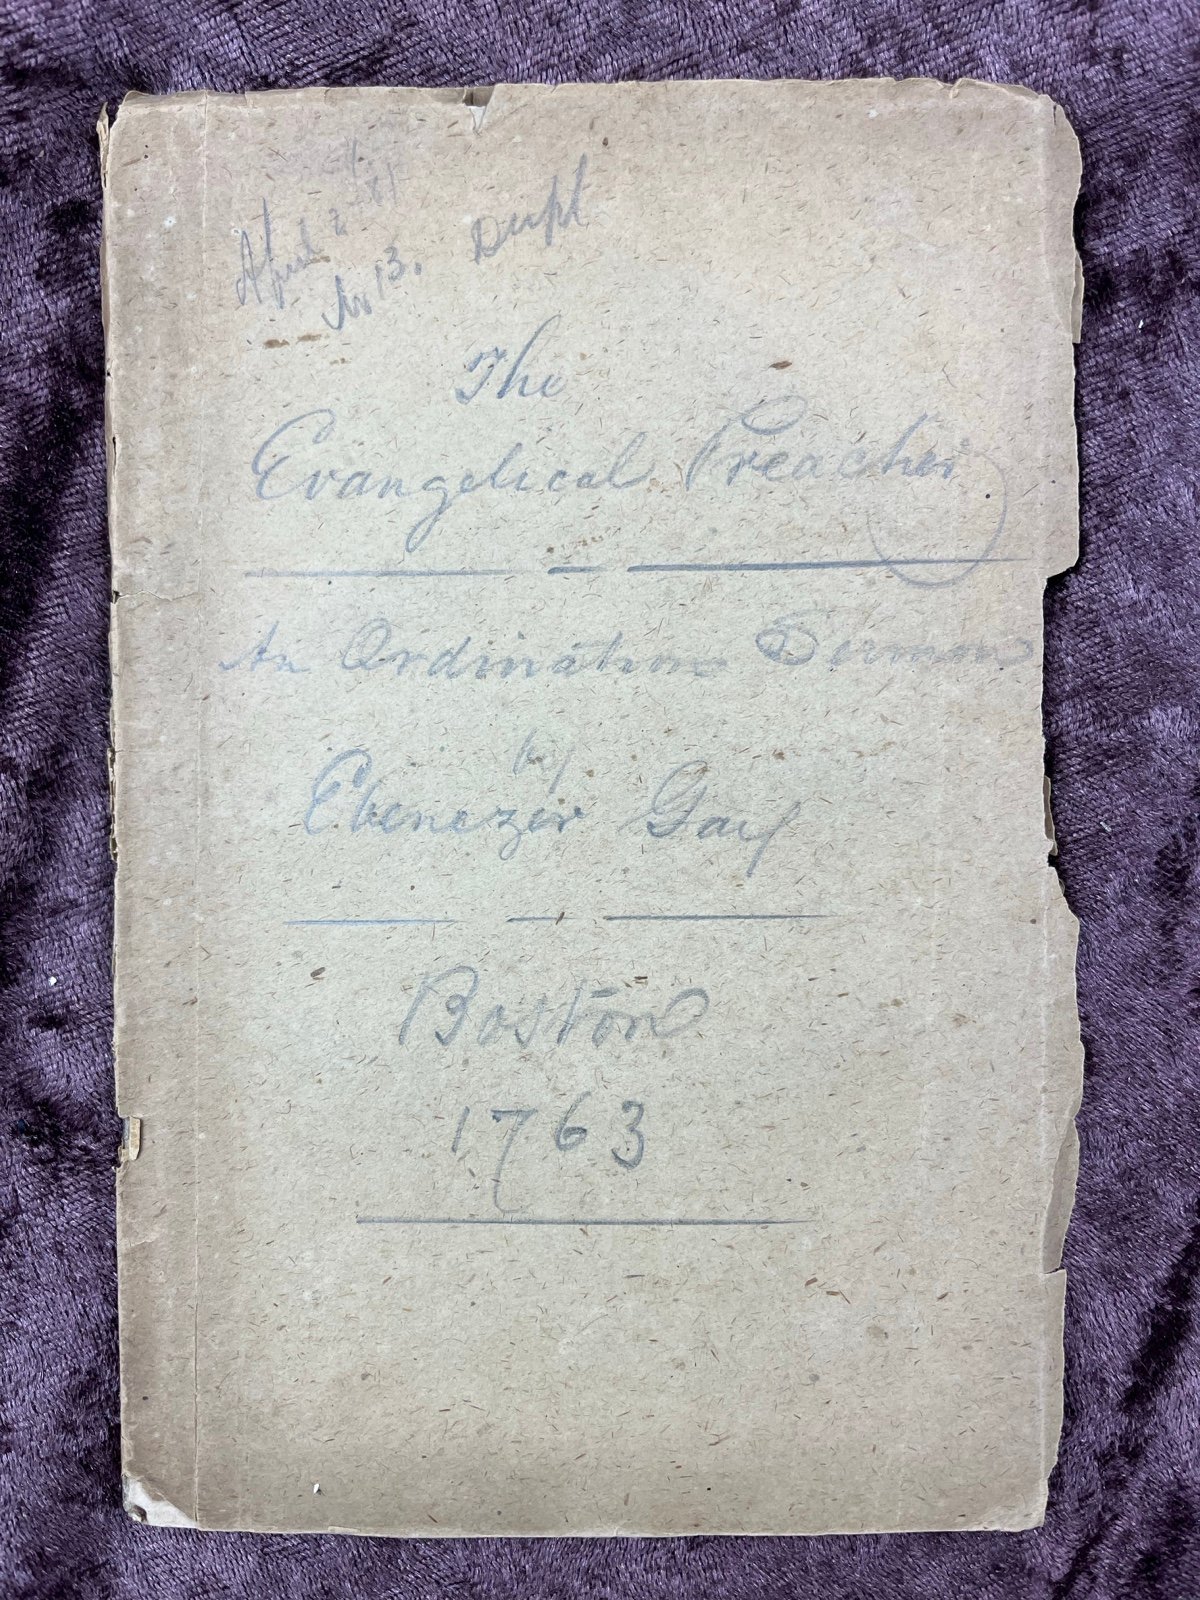 April 2
No 13. Dupl
The
Evangelical Preacher
An Ordination Sermon
by
Ebenezer Gay
Boston
1763